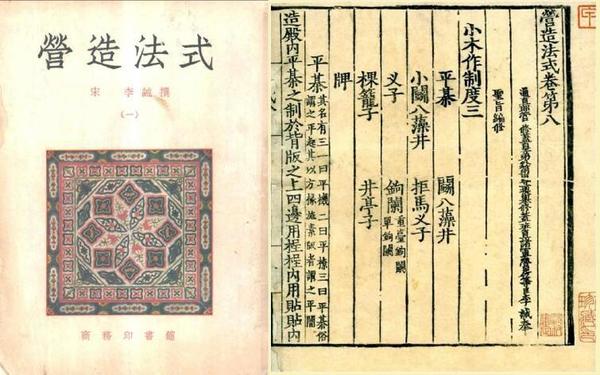 營造法式
宋 李誡撰
(一)
商務印書館
營造法式卷第八
通直郎管修蓋皇弟外第專一提舉修蓋班直諸軍營房等臣李誡奉
聖旨編修
小木作制度三
平棊 鬭八藻井
小鬭八藻井 拒馬叉子
叉子 鉤闌 重臺鉤闌 單鉤闌
棵籠子 井亭子
牌
平棊 其名有三一曰平機二曰平橑三曰平棊俗謂之平起其以方椽施素版者謂之平闇
造殿內平棊之制於背版之上四邊用桯桯內用貼貼內